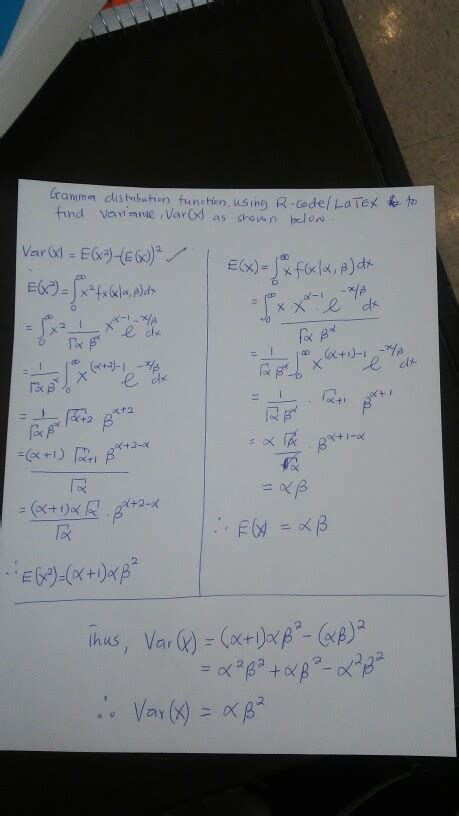 Gamma distribution function using R-code/LaTEX to
find variance, Var(x) as shown below.
Var(x) = E(x²)-(E(x))² ✓
E(x²)=∫₀^∞ x² f(x|α,β)dx
= ∫₀^∞ x² 1/(Γα β^α) x^(α-1) e^(-x/β) dx
= 1/(Γα β^α) ∫₀^∞ x^((α+2)-1) e^(-x/β) dx
= 1/(Γα β^α) Γα+2 β^(α+2)
=(α+1) Γα+1 β^(α+2-α) / Γα
= (α+1)α Γα / Γα · β^(α+2-α)
∴ E(x²)=(α+1)αβ²
E(x)=∫₀^∞ x f(x|α,β)dx
= ∫₀^∞ x x^(α-1) · e^(-x/β) dx / Γα β^α
= 1/(Γα β^α) ∫₀^∞ x^((α+1)-1) e^(-x/β) dx
= 1/(Γα β^α) · Γα+1 β^(α+1)
= α Γα / Γα · β^(α+1-α)
= αβ
∴ E(x) = αβ
Thus, Var(x) = (α+1)αβ² - (αβ)²
= α²β² + αβ² - α²β²
∴ Var(x) = αβ²